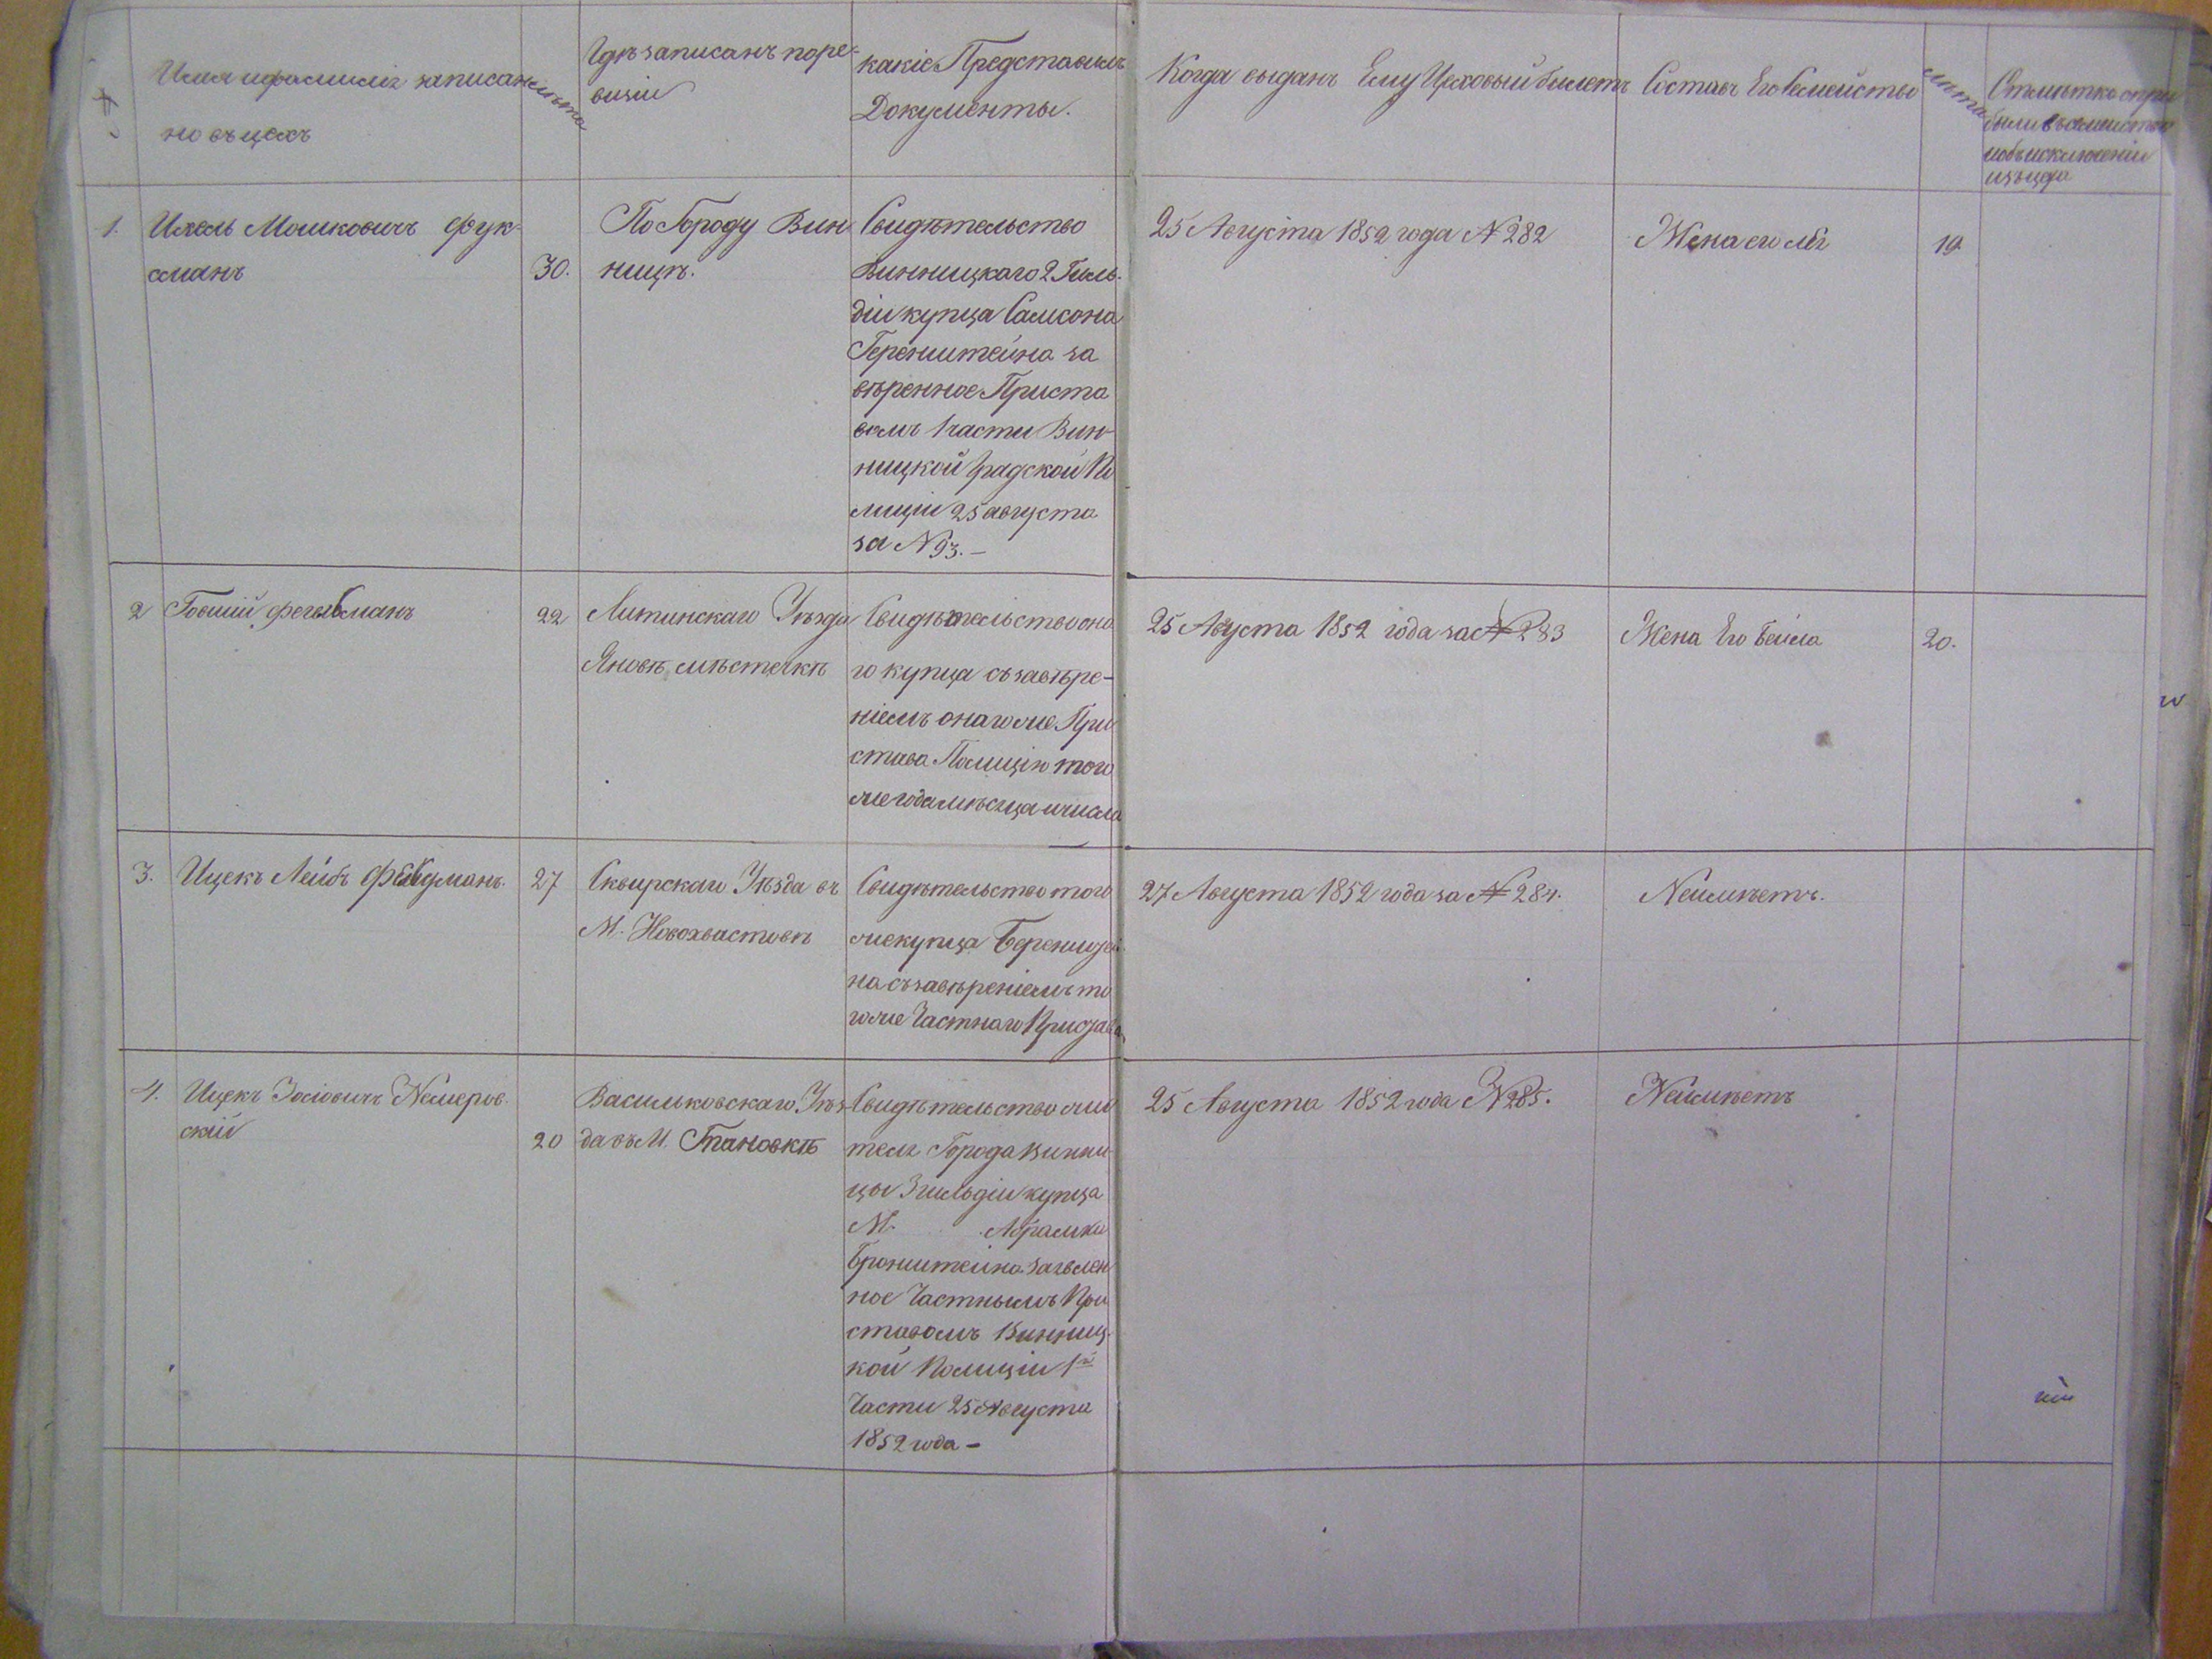 Имя и фамилія записан
но въ цехъ
лѣта
Гдѣ записанъ по ре-
визіи
какіе Представилъ
Документы.
Когда выданъ Ему Цеховый билетъ
Составъ Его Семейства
лѣта
Отмѣтка о при
были въ семейство
и объ исключеніи
изъ цеха
1. Ихель Мошковичъ Фук-
сманъ
30.
По Городу Вин-
ницѣ.
Свидѣтельство
Винницкаго 2 Гиль-
діи купца Самсона
Беренштейна за
вѣренное Приста
вомъ 1 части Вин-
ницкой Градской По
лиціи 25 августа
за N 93. —
25 Августа 1852 года N 282
Жена его
19
2 Говшій
22
Литинскаго Уѣзда
Яновѣ мѣстечкѣ
Свидѣтельство она
го купца съ завѣре-
ніемъ онаго же При
става Полиціи того
же года мѣсяца и числа
25 Августа 1852 года за N 283
Жена Его Бейла
20.
3. Ицекъ Лейбъ
27
Сквирскаго Уѣзда въ
М. Новохвастовѣ
Свидѣтельство того
же купца Бereнштей
на съ завѣреніемъ то
го же Частнаго Пристава
27 Августа 1852 года за N 284.
Неимѣетъ.
4. Ицекъ Іосіовичъ Немеров-
скій
20
Васильковскаго Уѣз-
да въ М.
Свидѣтельство жи
теля Города Винни
цы 3 гильдіи купца
М. Абрамка
Бронштейна
ное Частнымъ При
ставомъ Винниц-
кой Полиціи 1й
Части 25 Августа
1852 года —
25 Августа 1852 года N 285.
Неимѣетъ